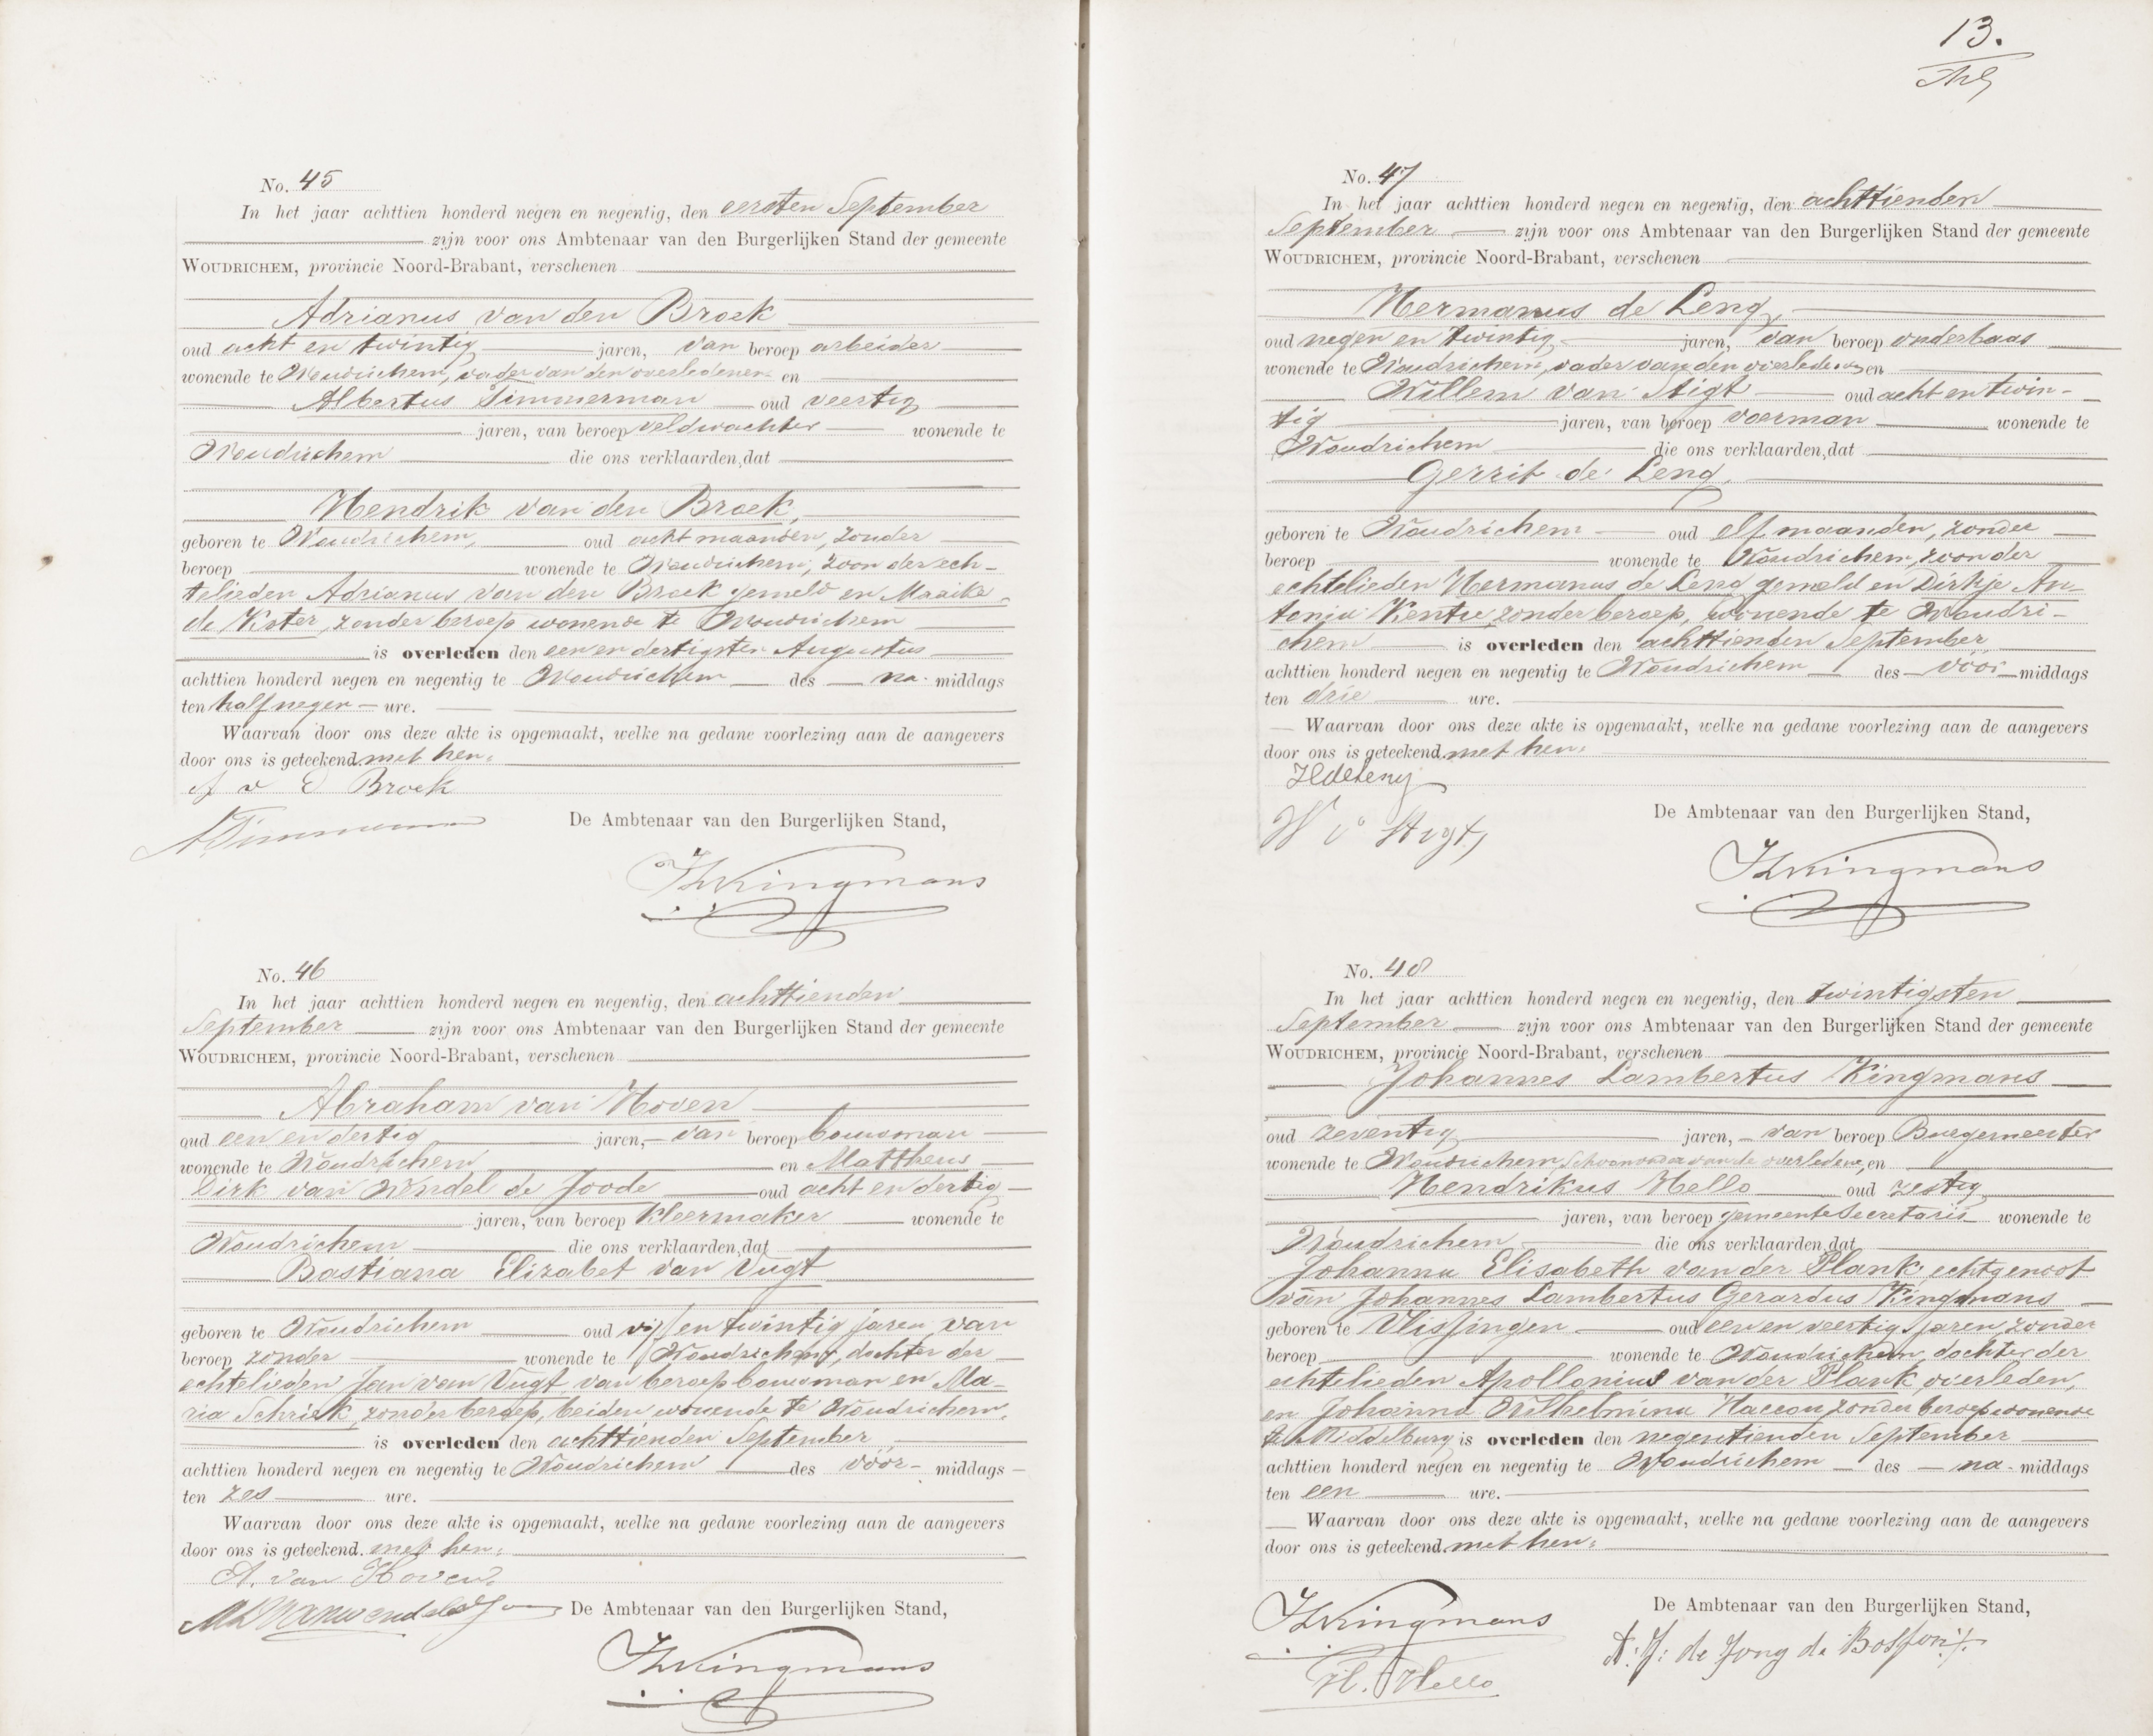 No. 45
In het jaar achttien honderd negen en negentig, den eersten September
zijn voor ons Ambtenaar van den Burgerlijken Stand der gemeente
WOUDRICHEM, provincie Noord-Brabant, verschenen
Adrianus van den Broek
oud acht en twintig jaren, van beroep arbeider
wonende te Woudrichem, vader van den overledenen en
Albertus Timmerman oud veertig
jaren, van beroep veldwachter wonende te
Woudrichem die ons verklaarden, dat
Hendrik van den Broek,
geboren te Woudrichem, oud acht maanden, zonder
beroep wonende te Woudrichem, zoon der ech-
telieden Adrianus van den Broek gemeld en Maaike
de Koter, zonder beroep wonende te Woudrichem
is overleden den een en dertigsten Augustus
achttien honderd negen en negentig te Woudrichem des na middags
ten half negen ure.
Waarvan door ons deze akte is opgemaakt, welke na gedane voorlezing aan de aangevers
door ons is geteekend met hen.
A v d Broek
De Ambtenaar van den Burgerlijken Stand,
ATimmerman
JLKingmans
No. 46
In het jaar achttien honderd negen en negentig, den achttienden
September zijn voor ons Ambtenaar van den Burgerlijken Stand der gemeente
WOUDRICHEM, provincie Noord-Brabant, verschenen
Abraham van Hoven
oud een en dertig jaren, van beroep bouwman
wonende te Woudrichem en Mattheus
Dirk van Wendel de Joode oud acht en dertig
jaren, van beroep kleermaker wonende te
Woudrichem die ons verklaarden, dat
Bastiana Elizabet van Vugt
geboren te Woudrichem oud vijf en twintig jaren van
beroep zonder wonende te Woudrichem, dochter der
echtelieden Jan van Vugt van beroep bouwman en Ma-
ria Schriek, zonder beroep, beiden wonende te Woudrichem,
is overleden den achttienden September
achttien honderd negen en negentig te Woudrichem des vóór- middags
ten zes ure.
Waarvan door ons deze akte is opgemaakt, welke na gedane voorlezing aan de aangevers
door ons is geteekend. met hen.
A. van Hoven.
De Ambtenaar van den Burgerlijken Stand,
JLKingmans
13.
No. 47
In het jaar achttien honderd negen en negentig, den achttienden
September zijn voor ons Ambtenaar van den Burgerlijken Stand der gemeente
WOUDRICHEM, provincie Noord-Brabant, verschenen
Hermanus de Leng,
oud negen en twintig jaren, van beroep onderbaas
wonende te Woudrichem, vader van den overledenen en
Willem van Stigt oud acht en twin-
tig jaren, van beroep voerman wonende te
Woudrichem die ons verklaarden, dat
Gerrit de Leng,
geboren te Woudrichem oud elf maanden, zonder
beroep wonende te Woudrichem, zoon der
echtelieden Hermanus de Leng gemeld en Dirkje An-
tonia Kentie zonder beroep, wonende te Woudri-
chem is overleden den achttienden September
achttien honderd negen en negentig te Woudrichem des vóór middags
ten drie ure.
Waarvan door ons deze akte is opgemaakt, welke na gedane voorlezing aan de aangevers
door ons is geteekend met hen.
HdeLeng
De Ambtenaar van den Burgerlijken Stand,
W v Stigt,
JLKingmans
No. 48
In het jaar achttien honderd negen en negentig, den twintigsten
September zijn voor ons Ambtenaar van den Burgerlijken Stand der gemeente
WOUDRICHEM, provincie Noord-Brabant, verschenen
Johannes Lambertus Kingmans
oud zeventig jaren, van beroep Burgemeester
wonende te Woudrichem, Schoonvader van de overledene, en
Hendrikus Hello oud zestig
jaren, van beroep gemeente Secretaris wonende te
Woudrichem die ons verklaarden, dat
Johanna Elisabeth van der Plank, echtgenoot
van Johannes Lambertus Gerardus Kingmans
geboren te Vlissingen oud een en veertig jaren zonder
beroep wonende te Woudrichem, dochter der
echtelieden Apollonius van der Plank, overleden,
en Johanna Wilhelmina Haccou zonder beroep wonende
te Middelburg is overleden den negentienden September
achttien honderd negen en negentig te Woudrichem des na- middags
ten een ure.
Waarvan door ons deze akte is opgemaakt, welke na gedane voorlezing aan de aangevers
door ons is geteekend met hen.
JLKingmans
De Ambtenaar van den Burgerlijken Stand,
H. Hello
de Jong de